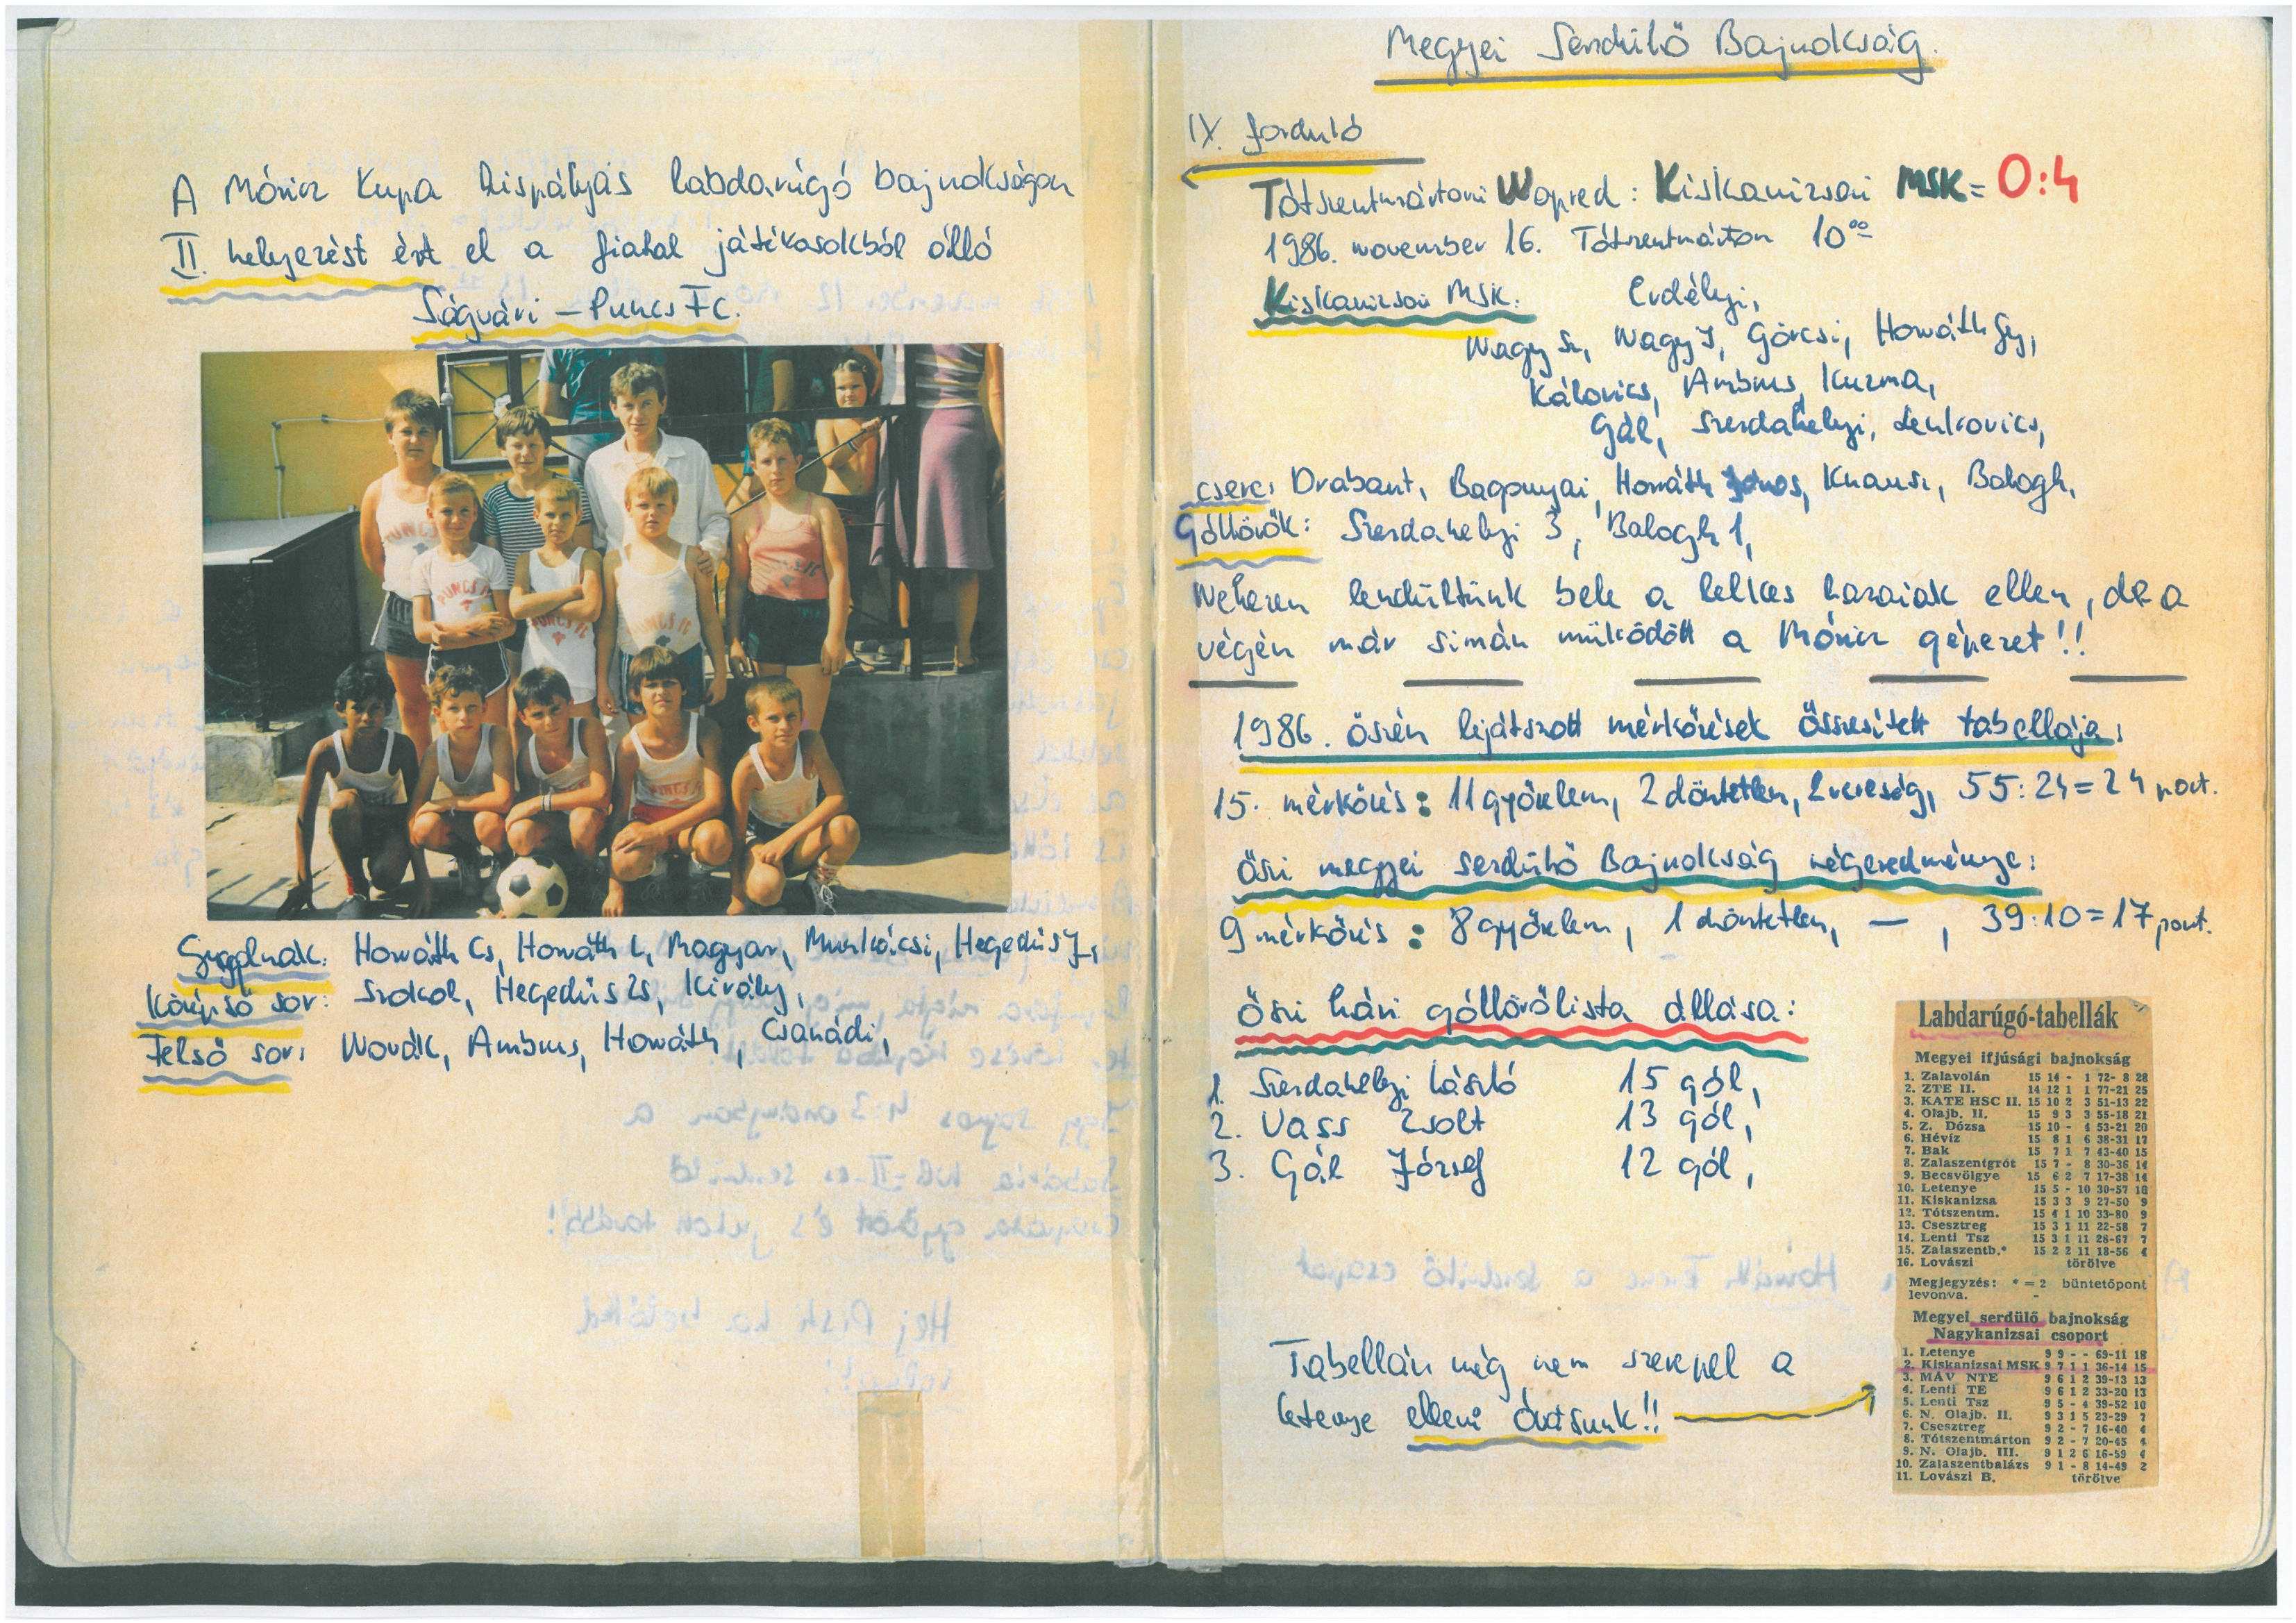 A Móricz Kupa kispályás labdarúgó bajnokságon
II. helyezést ért el a fiatal játékosokból álló
Ságvári – Puncs FC.
PUNCS FC
PUNCS FC
PUNCS FC
Guggolnak: Horváth Cs, Horváth L, Magyar, Munkácsi, Hegedüs J,
Középső sor: Szokol, Hegedüs Zs, Király,
Felső sor: Novák, Ambrus, Horváth, Csanádi,
Megyei Serdülő Bajnokság.
IX. forduló
Tótszentmártoni Napred : Kiskanizsai MSK = 0:4
1986. november 16. Tótszentmárton 10⁰⁰
Kiskanizsai MSK. Erdélyi,
Nagy Sz, Nagy J, Göresi, Horváth Gy,
Kálovics, Ambrus, Kuzma,
Gál, Szerdahelyi, Lenkovics,
csere: Drabant, Bagonyai, Horváth János, Knausz, Balogh,
Góllövők: Szerdahelyi 3, Balogh 1,
Nehezen lendültünk bele a lelkes hazaiak ellen, de a
végén már simán müködött a Móricz gépezet!!
1986. őszén lejátszott mérkőzések összesített tabellája:
15. mérkőzés: 11 győzelem, 2 döntetlen, 2 vereség, 55:24 = 24 pont.
Őszi megyei serdülő Bajnokság végeredménye:
9 mérkőzés: 8 győzelem, 1 döntetlen, — , 39:10 = 17 pont.
Őszi házi góllövőlista állása:
1. Szerdahelyi László 15 gól,
2. Vass Zsolt 13 gól,
3. Gál József 12 gól,
Tabellán még nem szerepel a
letenye elleni óvásunk!!
Labdarúgó-tabellák
Megyei ifjúsági bajnokság
1. Zalavolán 15 14 - 1 72- 8 28
2. ZTE II. 14 12 1 1 77-21 25
3. KATE HSC II. 15 10 2 3 51-13 22
4. Olajb. II. 15 9 3 3 55-18 21
5. Z. Dózsa 15 10 - 4 53-21 20
6. Hévíz 15 8 1 6 38-31 17
7. Bak 15 7 1 7 43-40 15
8. Zalaszentgrót 15 7 - 8 30-36 14
9. Becsvölgye 15 6 2 7 17-38 14
10. Letenye 15 5 - 10 30-57 10
11. Kiskanizsa 15 3 3 9 27-50 9
12. Tótszentm. 15 4 1 10 33-80 9
13. Csesztreg 15 3 1 11 22-58 7
14. Lenti Tsz 15 3 1 11 28-67 7
15. Zalaszentb.* 15 2 2 11 18-56 4
16. Lovászi törölve
Megjegyzés: * = 2 büntetőpont
levonva.
Megyei serdülő bajnokság
Nagykanizsai csoport
1. Letenye 9 9 - - 69-11 18
2. Kiskanizsai MSK 9 7 1 1 36-14 15
3. MÁV NTE 9 6 1 2 39-13 13
4. Lenti TE 9 6 1 2 33-20 13
5. Lenti Tsz 9 5 - 4 39-52 10
6. N. Olajb. II. 9 3 1 5 23-29 7
7. Csesztreg 9 2 - 7 16-40 4
8. Tótszentmárton 9 2 - 7 20-45 4
9. N. Olajb. III. 9 1 2 6 16-59 4
10. Zalaszentbalázs 9 1 - 8 14-49 2
11. Lovászi B. törölve